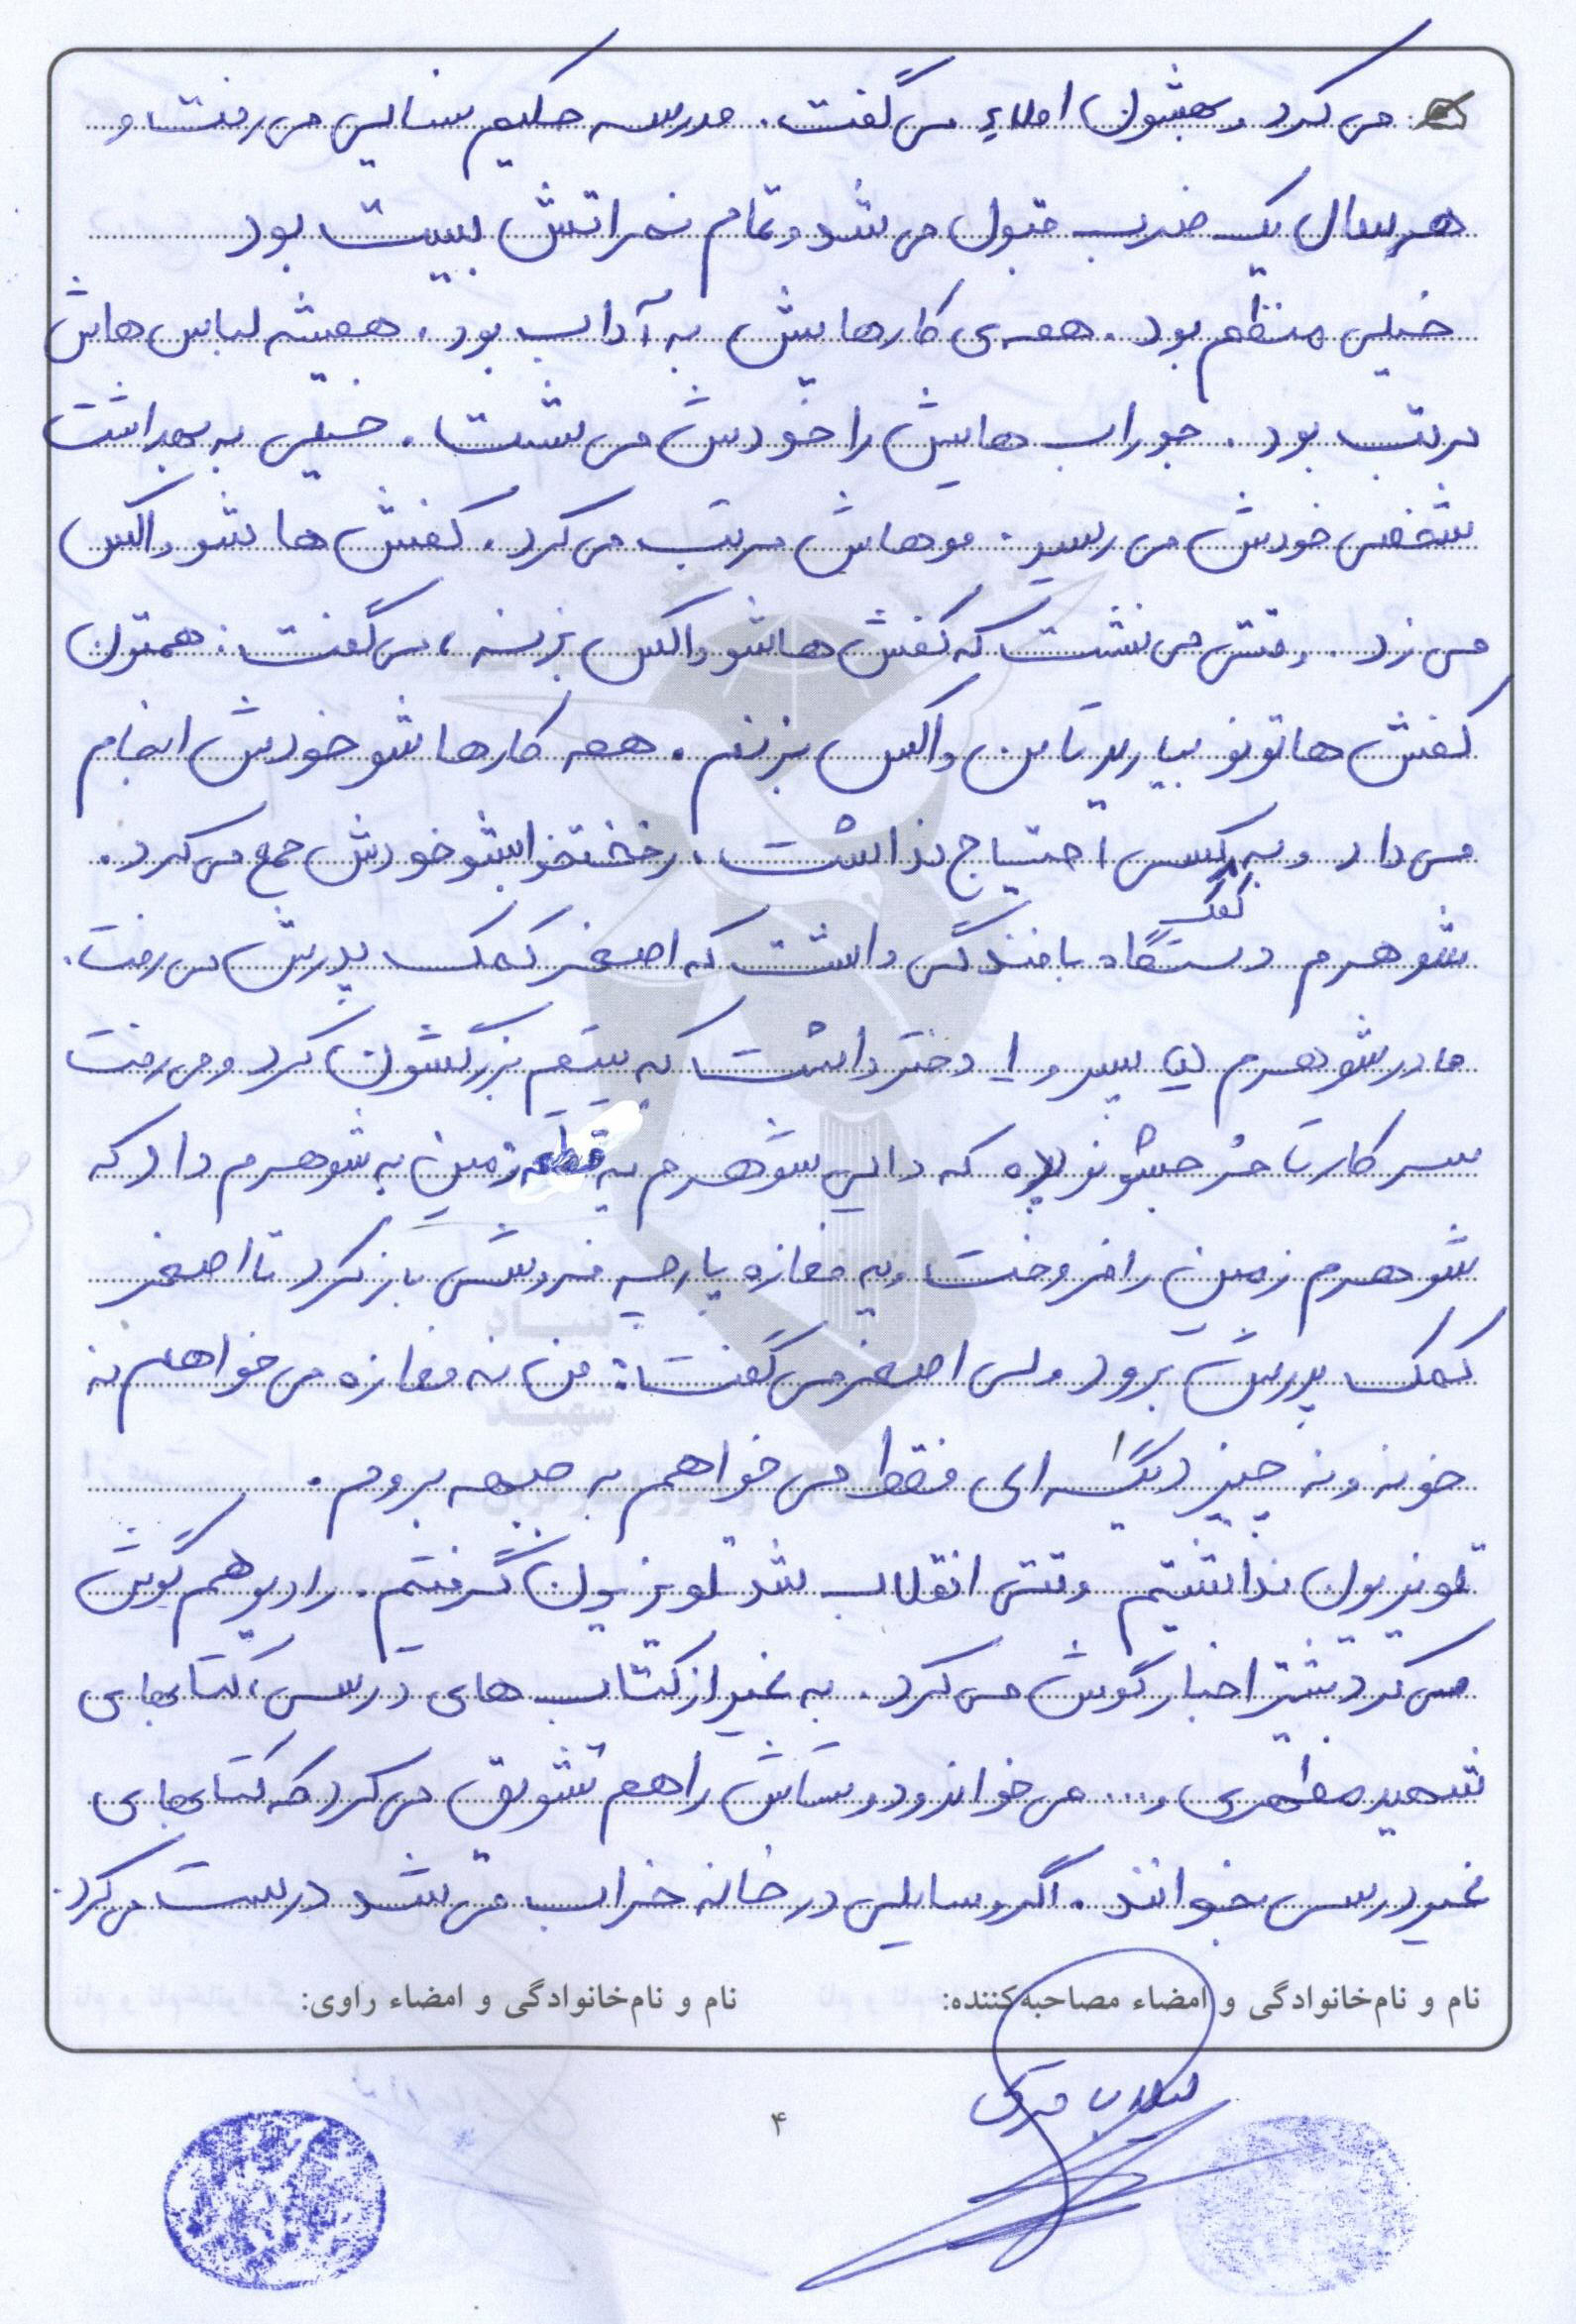 می کرد و بهشون املاء می گفت. مدرسه حکیم سنایی می رفت و
هر سال یک ضرب قبول می شد و تمام نمراتش بیست بود
خیلی منظم بود. همه ی کارهایش به آداب بود. همیشه لباس هاش
مرتب بود. جوراب هایش را خودش می شست. خیلی به بهداشت
شخصی خودش می رسید. موهاش مرتب می کرد. کفش ها شو واکس
می زد. وقتی می نشست که کفش هاشو واکس بزنه، می گفت: همتون
کفش هاتونو بیارید تا من واکس بزنم. همه کارها شو خودش انجام
می داد و به کسی احتیاج نداشت. رختخوابشو خودش جمع می کرد.
کمک
شوهرم دستگاه بافندگی داشت که اصغر کمک پدرش می رفت.
مادر شوهرم پسر و ۱ دختر داشت که یتیم بزرگشون کرد و می رفت
سر کار تا خرجشونو بده که دایی شوهرم یه قطعه زمین به شوهرم داد که
شوهرم زمین را فروخت و یه مغازه پارچه فروشی باز کرد تا اصغر
کمک پدرش برود ولی اصغر می گفت: من نه مغازه می خواهم نه
خونه و نه چیز دیگه ای فقط می خواهم به جبهه بروم.
تلویزیون نداشتیم وقتی انقلاب شد تلویزیون گرفتیم. رادیو هم گوش
می کرد بیشتر اخبار گوش می کرد. به غیر از کتاب های درسی، کتابهای
شهید مطهری و... می خواند و دوستاش را هم تشویق می کرد که کتابهای
غیر درسی بخوانند. اگر وسایلی در خانه خراب می شد درست می کرد.
نام و نام‌خانوادگی و امضاء مصاحبه‌کننده: نام و نام‌خانوادگی و امضاء راوی:
۴